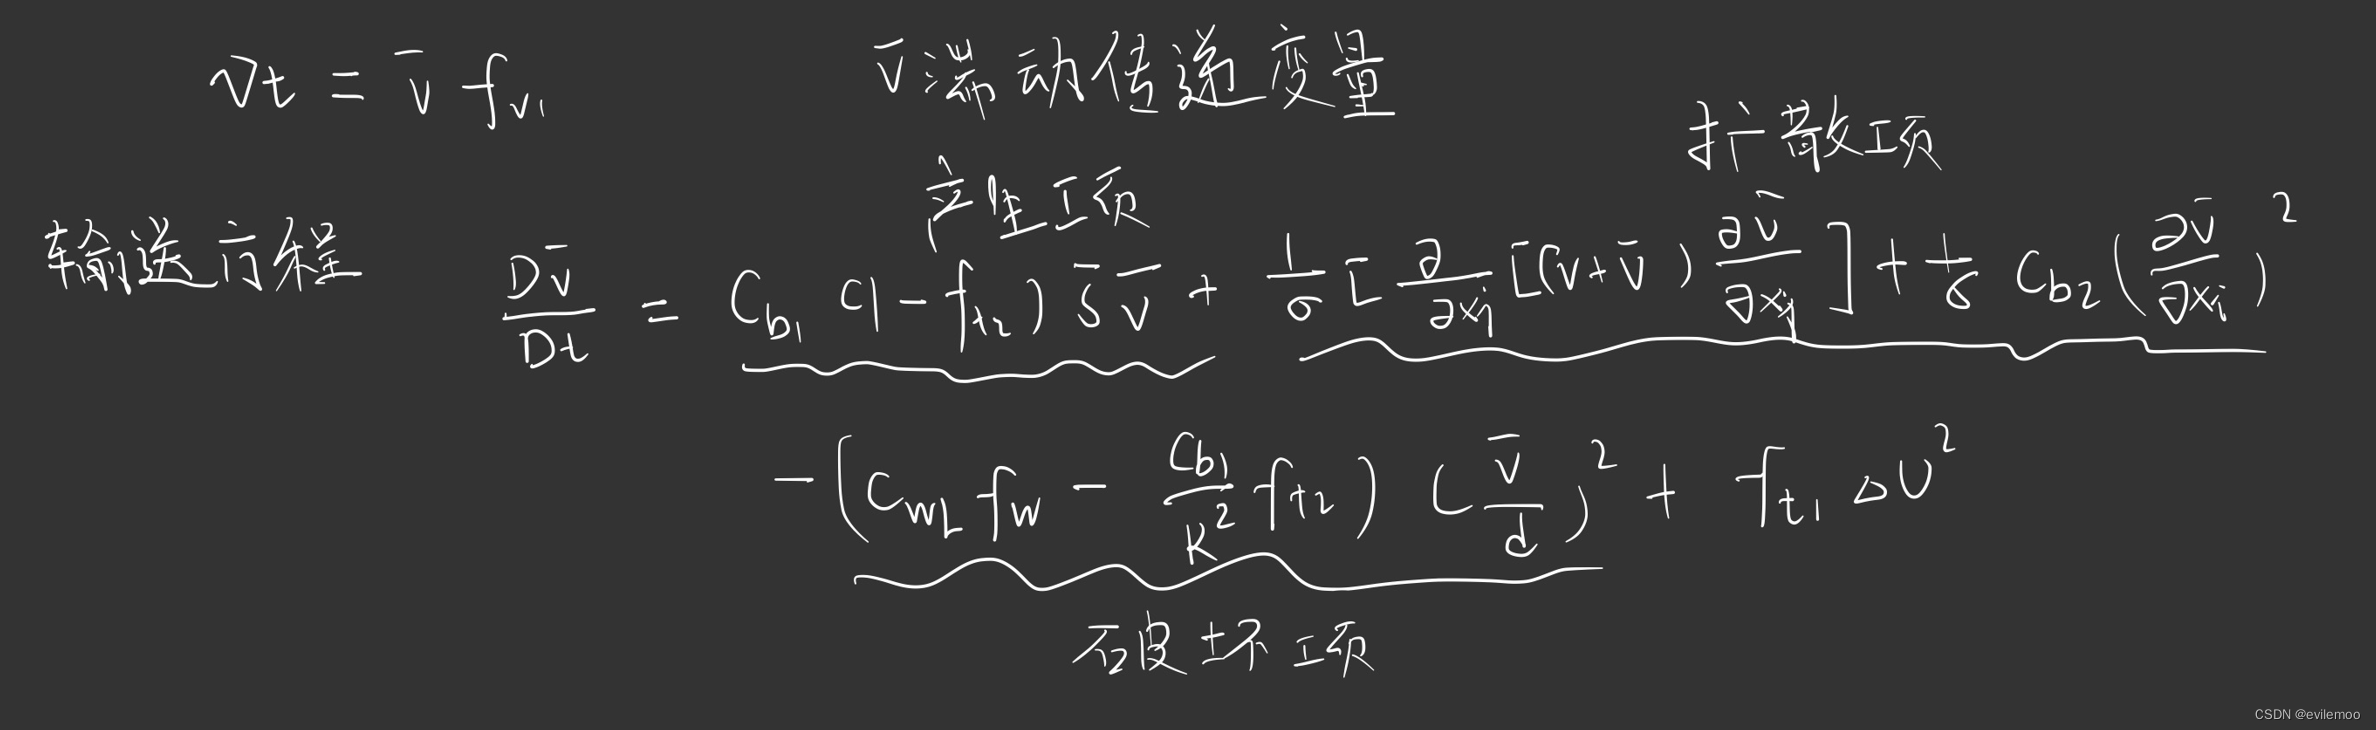 νt = v̄ fv1
v̄ 湍动传递变量
扩散项
产生项
输送方程
Dv̄/Dt = Cb1 (1 - ft2) S̄ v̄ + 1/σ [ ∂/∂xj [(v + v̄) ∂v̄/∂xj ] + 1/σ Cb2 (∂v̄/∂xi)²
- (Cw1 fw - Cb1/K² ft2) (v̄/d)² + ft1 ΔU²
破坏项
CSDN @evilemoo